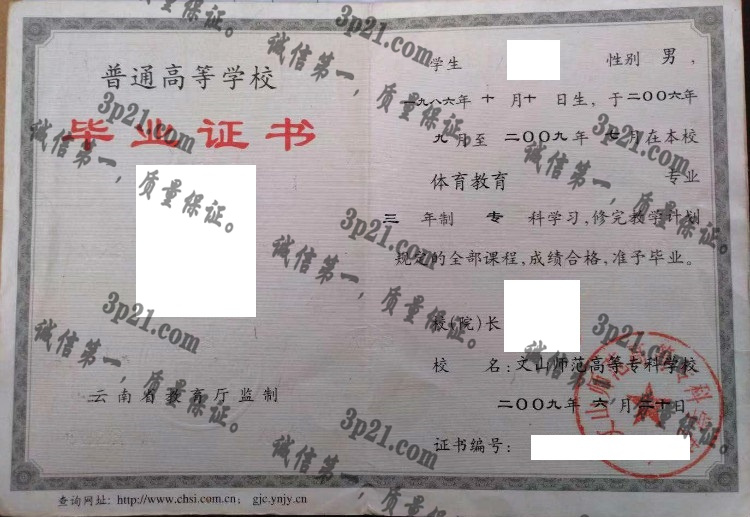 普通高等学校
毕业证书
云南省教育厅监制
学生 性别 男，
一九八六年 十 月十 日生，于二〇〇六年
九 月至 二〇〇九 年 七 月在本校
体育教育 专业
三 年制 专 科学习，修完教学计划
规定的全部课程，成绩合格，准予毕业。
校（院）长
校 名：文山师范高等专科学校
二〇〇九年 六 月 二十日
证书编号：
查询网址：http://www.chsi.com.cn； gjc.ynjy.cn
3p21.com
诚信第一，质量保证。
3p21.com
诚信第一，质量保证。
3p21.com
诚信第一，质量保证。
3p21.com
诚信第一，质量保证。
3p21.com
诚信第一，质量保证。
3p21.com
诚信第一，质量保证。
3p21.com